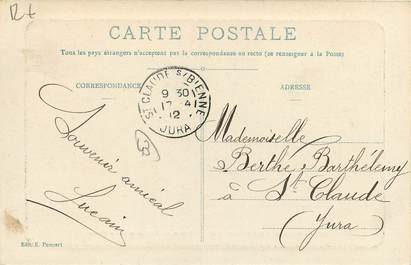 R+
CARTE POSTALE
Tous les pays étrangers n'acceptent pas la correspondance au recto (se renseigner à la Poste)
CORRESPONDANCE
ADRESSE
ST CLAUDE S/ BIENNE
9 30
17 4
12
JURA
39
Souvenir amical
Lucain
Mademoiselle
Berthe Barthélemy
à St Claude
Jura